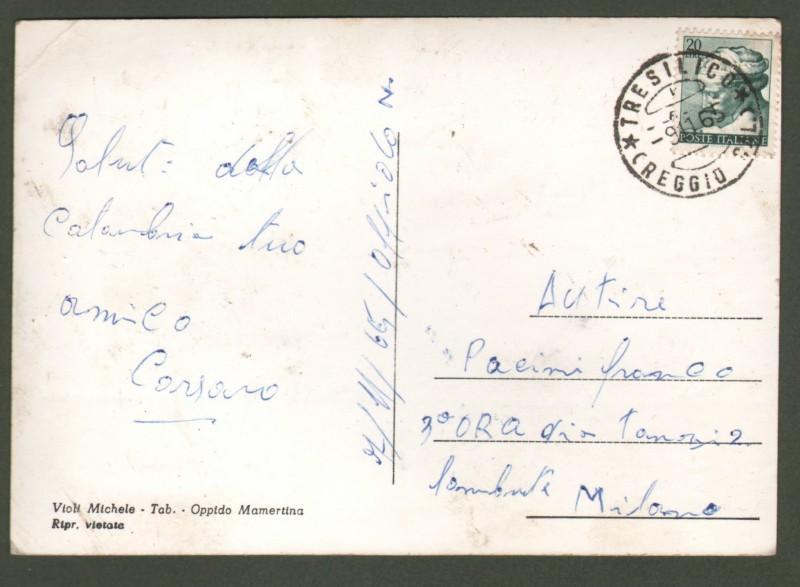 Saluti dalla
Calambria tuo
amico
Corsaro
Violi Michele - Tab. - Oppido Mamertina
Ripr. vietata
20
LIRE
POSTE ITALIANE
★ TRESILICO ★
(REGGIO
Autire
Pacini franco
3° ORA
Lambate Milano